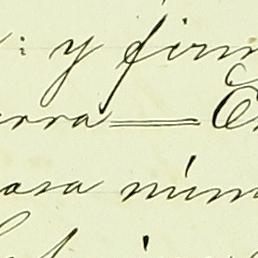 : y firm
erra = E
casa núm